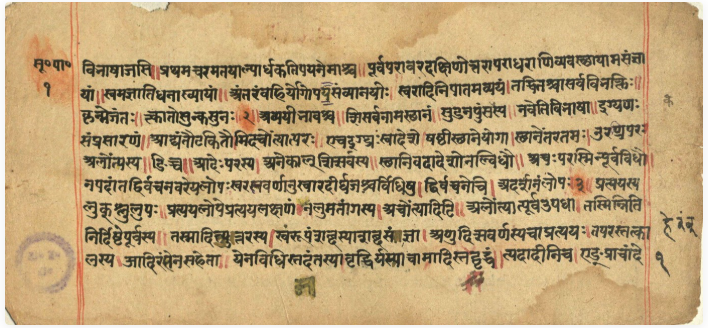 सू॰पा॰ विभाषाजसि॥ प्रथमचरमतयाल्पार्धकतिपयनेमाश्च॥ पूर्वपरावरदक्षिणोत्तरापराधराणिव्यवस्थायामसंज्ञा
१ यां॥ स्वमज्ञातिधनाख्यायां॥ अंतरंबहिर्योगोपसंव्यानयोः॥ स्वरादिनिपातमव्ययं॥ तद्धितश्चासर्वविभक्तिः॥
कृन्मेजंतः॥ क्त्वातोसुन्कसुनः॥ २ अव्ययीभावश्च॥ शिसर्वनामस्थानं॥ सुडनपुंसकस्य॥ नवेतिविभाषा॥ इग्यणः
संप्रसारणं॥ आद्यंतौटकितौ मिदचोंत्यात्परः॥ एचइग्घ्रस्वादेशे षष्ठीस्थानेयोगा॥ स्थानेंतरतमः॥ उरण्रपरः
अलोंत्यस्य॥ ङिच्च॥ आदेःपरस्य॥ अनेकाल्शित्सर्वस्य॥ स्थानिवदादेशोनल्विधौ॥ अचःपरस्मिन्पूर्वविधौ
नपदांतद्विर्वचनवरेयलोपस्वरसवर्णानुस्वारदीर्घजश्चर्विधिषु॥ द्विर्वचनेचि॥ अदर्शनंलोपः॥ ३ प्रत्ययस्य
लुक्श्लुलुपः॥ प्रत्ययलोपेप्रत्ययलक्षणं॥ नलुमतांगस्य॥ अचोंत्यादिटि॥ अलोंत्यात्पूर्वउपधा॥ तस्मिन्निति
निर्दिष्टेपूर्वस्य॥ तस्मादित्युत्तरस्य॥ स्वंरूपंशब्दस्याशब्दसंज्ञा॥ अणुदित्सवर्णस्यचाप्रत्ययः॥ तपरस्तत्का
लस्य॥ आदिरंत्येनसहेता॥ येनविधिस्तदंतस्य॥ वृद्धिर्यस्याचामादिस्तद्वृद्धं॥ त्यदादीनिच॥ एङ्प्राचांदे १